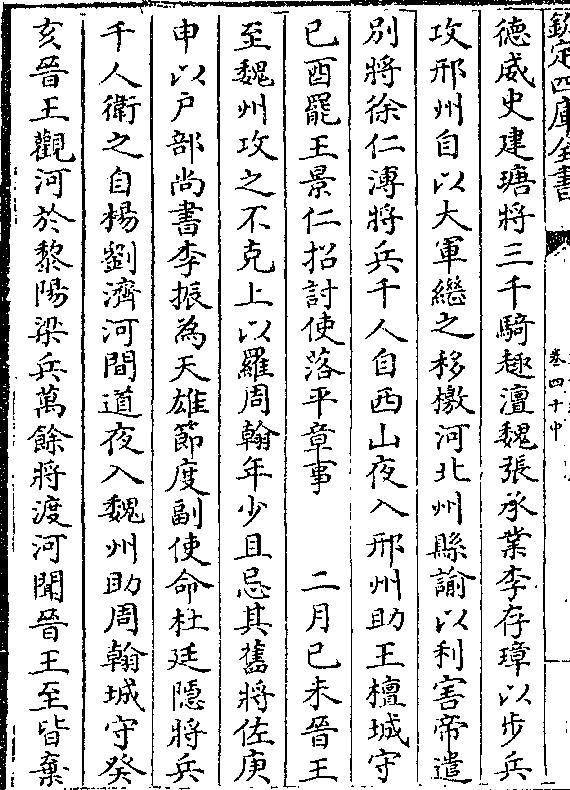 欽定四庫全書
卷四十中
德威史建瑭將三千騎趣澶魏張承業李存璋以步兵
攻邢州自以大軍繼之移檄河北州縣諭以利害帝遣
別將徐仁溥將兵千人自西山夜入邢州助王檀城守
己酉罷王景仁招討使落平章事　二月己未晉王
至魏州攻之不克上以羅周翰年少且忌其舊將佐庚
申以户部尚書李振為天雄節度副使命杜廷隱將兵
千人衛之自楊劉濟河間道夜入魏州助周翰城守癸
亥晉王觀河於黎陽梁兵萬餘將渡河聞晉王至皆棄